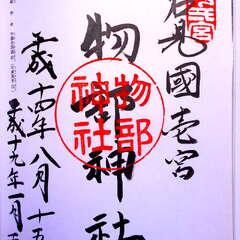 石見國壱宮
物部神社
物部
神社
平成十四年八月十五
平成十九年一月